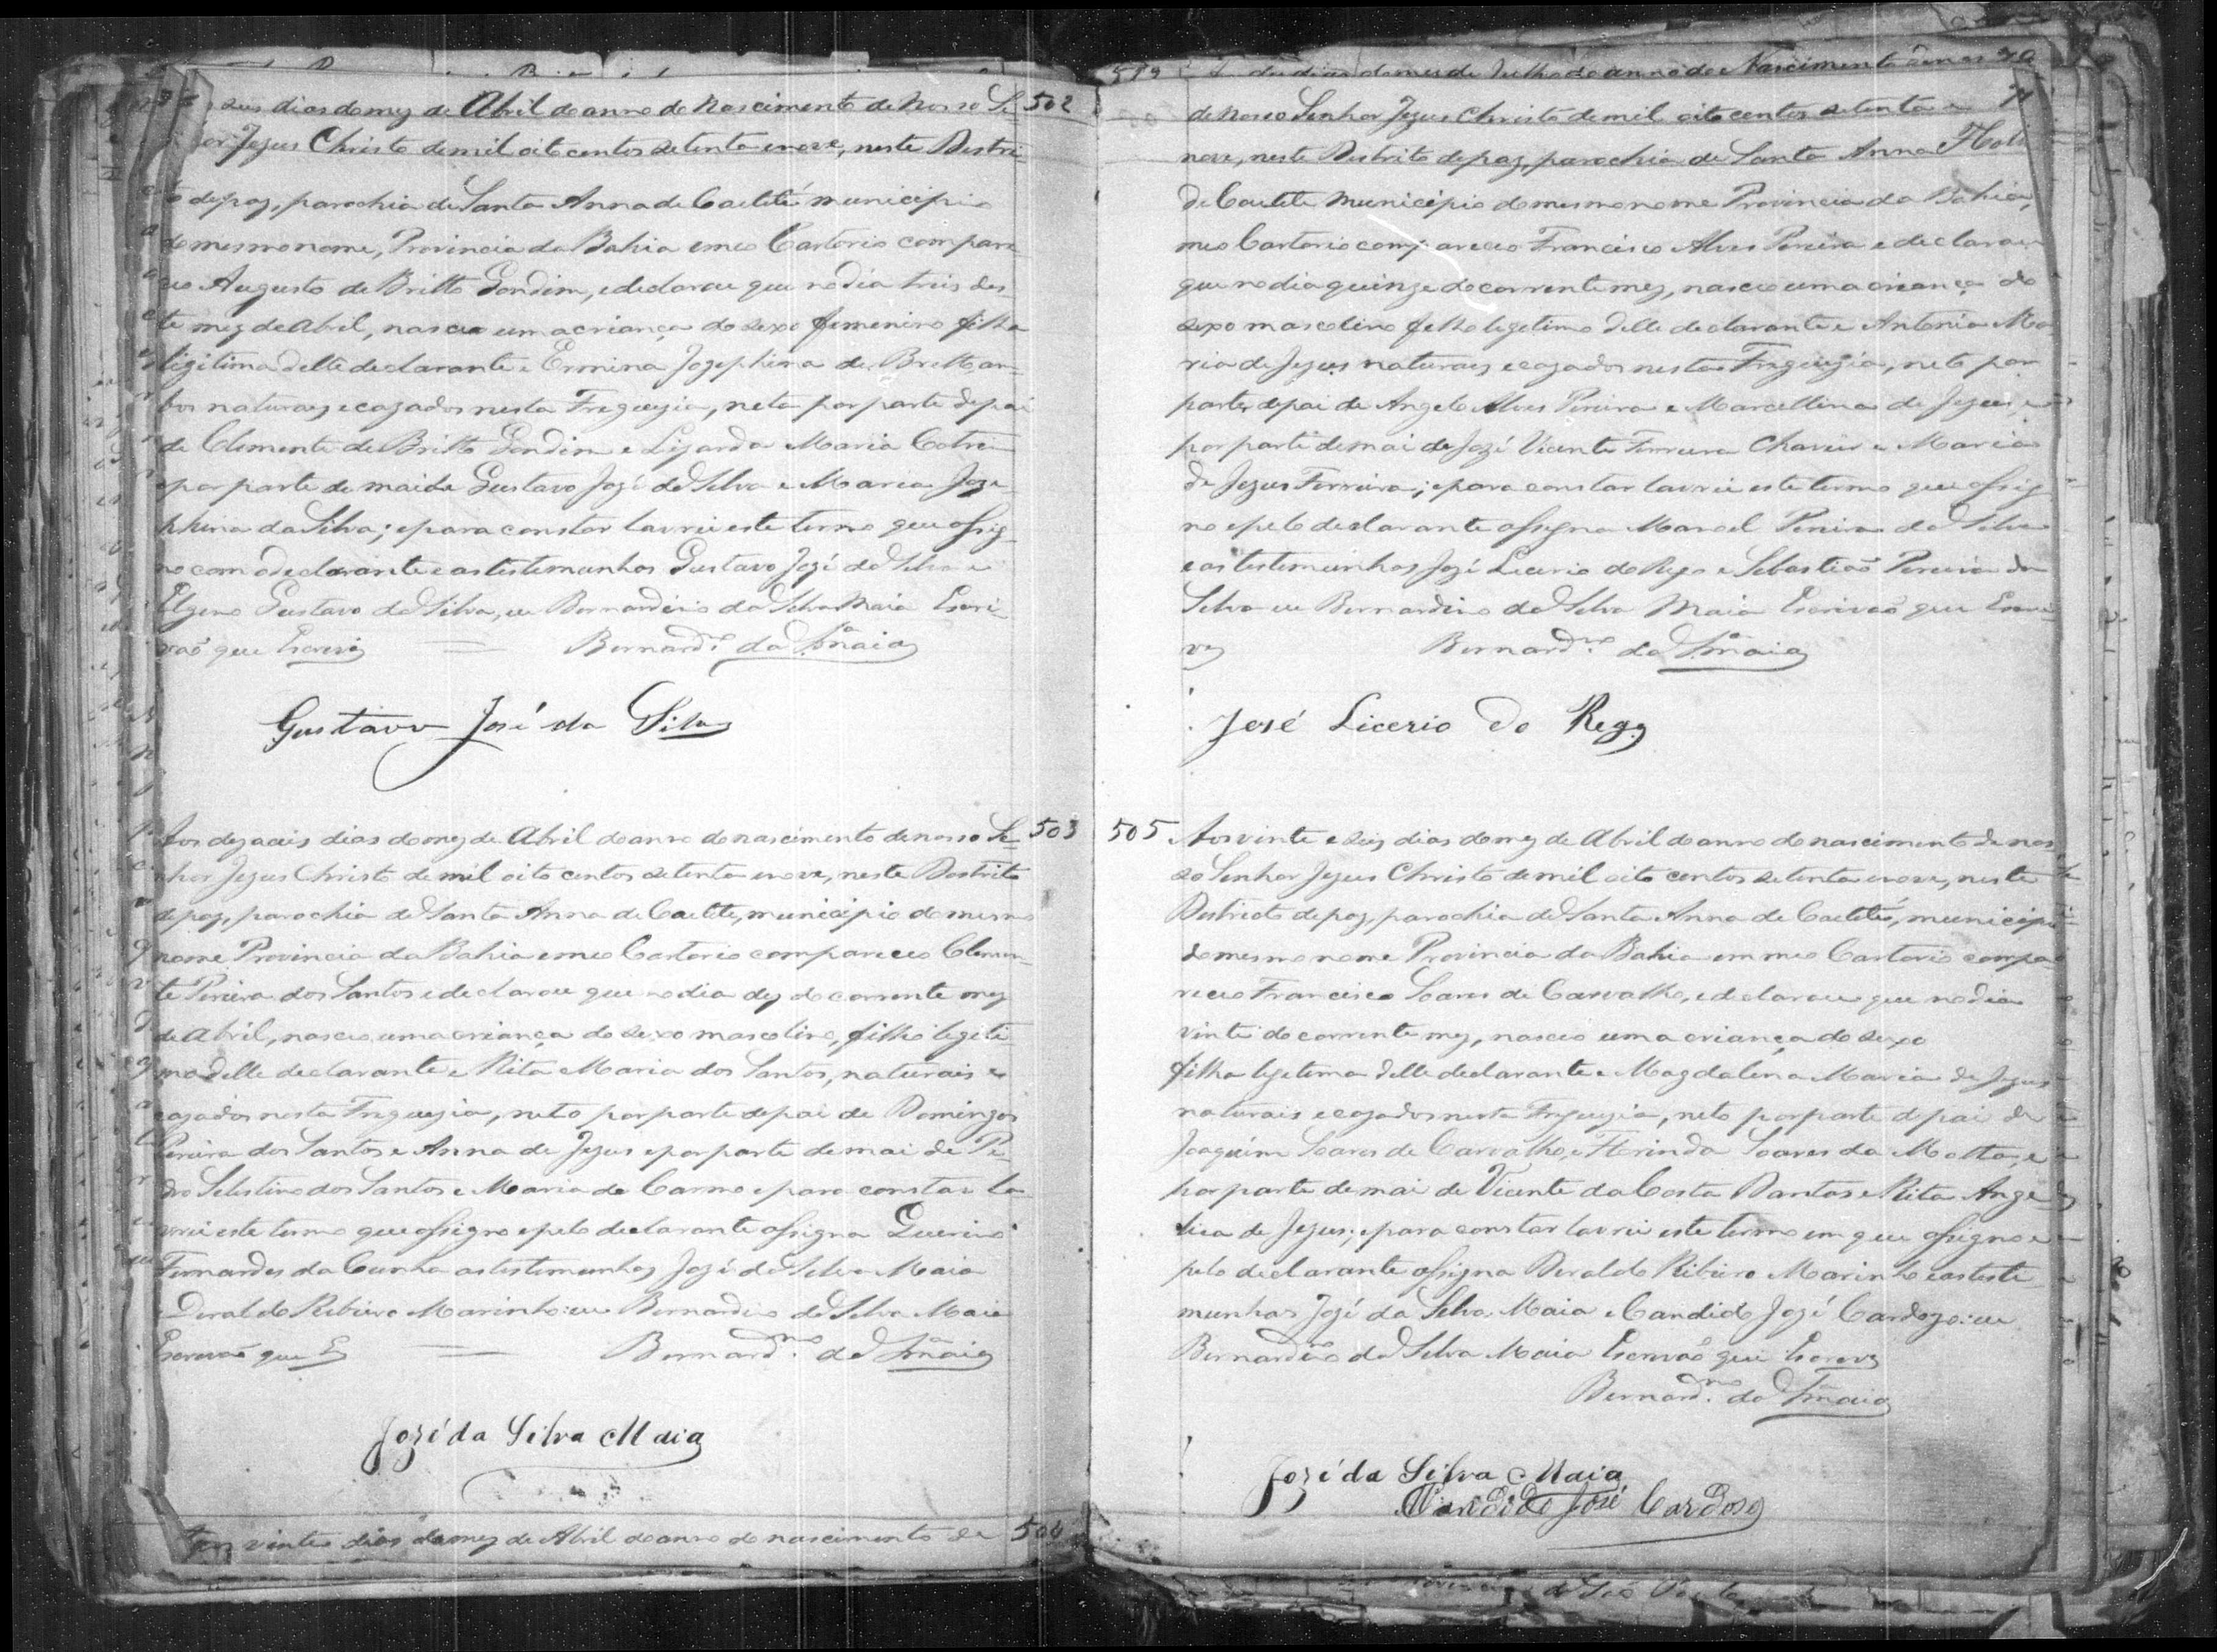 seis dias do mez de Abril do anno do Nascimento de Nosso Se- 502
nhor Jezus Christo de mil oito centos setenta e nove, neste Destri-
to de paz, parochia de Santa Anna de Caetité municipio
do mesmo nome, Provincia da Bahia em meo Cartorio compare-
ceo Augusto de Britto Gondim, e declarou que no dia tres des-
te mez de Abril, nasceo uma criança do sexo femenino filha
legitima delle declarante e Ermina Jozephina de Britto am-
bos naturaes e cazados nesta Freguezia, neta por parte de pai
de Clemente de Britto Gondim e Lizarda Maria Cotrim
e por parte de mai de Gustavo Jozé da Silva e Maria Joze-
phina da Silva; e para constar lavrei este termo que assig-
no com o declarante e as testemunhas Gustavo Jozé da Silva e
Gustavo da Silva, eu Bernardino da Silva Maia Escri-
vaõ que Escrevi Bernard.no da S.a Maia
Gustavo José da Silva
Aos dezaceis dias do mez de Abril do anno do nascimento de nosso Se- 503
nhor Jezus Christo de mil oito centos setenta e nove, neste Destrito
de paz, parochia de Santa Anna de Caetité, municipio do mesmo
nome Provincia da Bahia em meo Cartorio compareceo Clemen-
te Pereira dos Santos e declarou que no dia dez do corrente mez
de Abril, nasceo uma criança do sexo mascolino, filho legiti-
mo delle declarante e Rita Maria dos Santos, naturais e
cazados nesta Freguezia, neto por parte de pai de Domingos
Pereira dos Santos e Anna de Jezus e por parte de mai de Pe-
dro Selestino dos Santos e Maria do Carmo e para constar la-
vrei este termo que assigno e pelo declarante assigna
Fernandes da Cunha as testemunhas Jozé da Silva Maia
e Deraldo Ribeiro Marinho: eu Bernardino da Silva Maia
Escrivaõ que E Bernard.no da S.a Maia
Jozé da Silva Maia
Aos vinte dias do mez de Abril do anno do nascimento de 504
dias do mez de Julho do anno do Nascimento 70
de Nosso Senhor Jezus Christo de mil oito centos setenta e 71
nove, neste Destrito de paz, parochia de Santa Anna
de Caetité Municipio do mesmo nome Provincia da Bahia,
meo Cartorio compareceo Francisco Alves Pereira e declarou
que no dia quinze do corrente mez, nasceo uma criança do
sexo mascolino filho legetimo delle declarante e Antonia Ma-
ria de Jezus naturaes e cazados nesta Freguezia, neto por
parte de pai de Angelo Alves Pereira e Marcellina de Jezus e
por parte de mai de Jozé Vicente Ferreira e Maria
de Jezus Ferreira; e para constar lavrei este termo que assig-
no e pelo declarante assigna Manoel Pereira da Silva
e as testemunhas Jozé Licerio do Rego e Sebastiaõ Pereira da
Silva eu Bernardino da Silva Maia Escrivaõ que Escre-
vy Bernard.no da S.a Maia
José Licerio do Rego
505 Aos vinte e seis dias do mez de Abril do anno do nascimento de nos-
so Senhor Jezus Christo de mil oito centos setenta e nove, neste
Destricto de paz, parochia de Santa Anna de Caetité, municipio
do mesmo nome Provincia da Bahia em meo Cartorio compa-
receo Francisco Soares de Carvalho, e declarou que no dia
vinte do corrente mez, nasceo uma criança do sexo
filha legetima delle declarante e Magdalena Maria de Jezus
naturais e cazados nesta Freguezia, neto por parte de pai de
Joaquim Soares de Carvalho, e Florinda Soares da Motta, e
por parte de mai de Vicente da Costa Dantas e Rita Ange-
lica de Jezus; e para constar lavrei este termo em que assigno e
pelo declarante assigna Deraldo Ribeiro Marinho e as teste-
munhas Jozé da Silva Maia e Candido Jozé Cardozo: eu
Bernardino da Silva Maia Escrivaõ que Escrevy
Bernard.no da S.a Maia
Jozé da Silva Maia
Candido José Cardoso